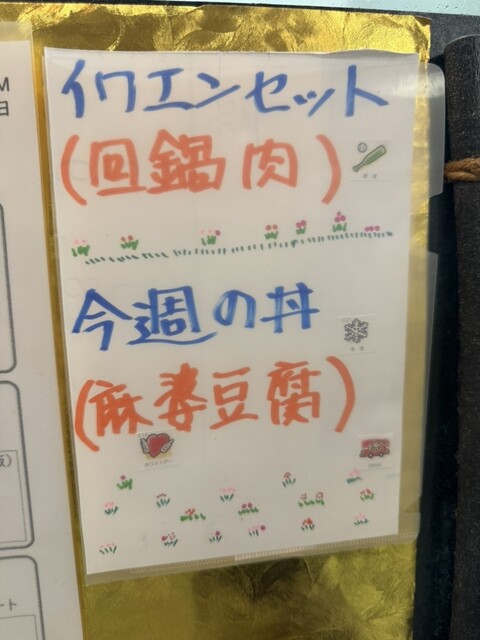 イワエンセット
(回鍋肉)
今週の丼
(麻婆豆腐)